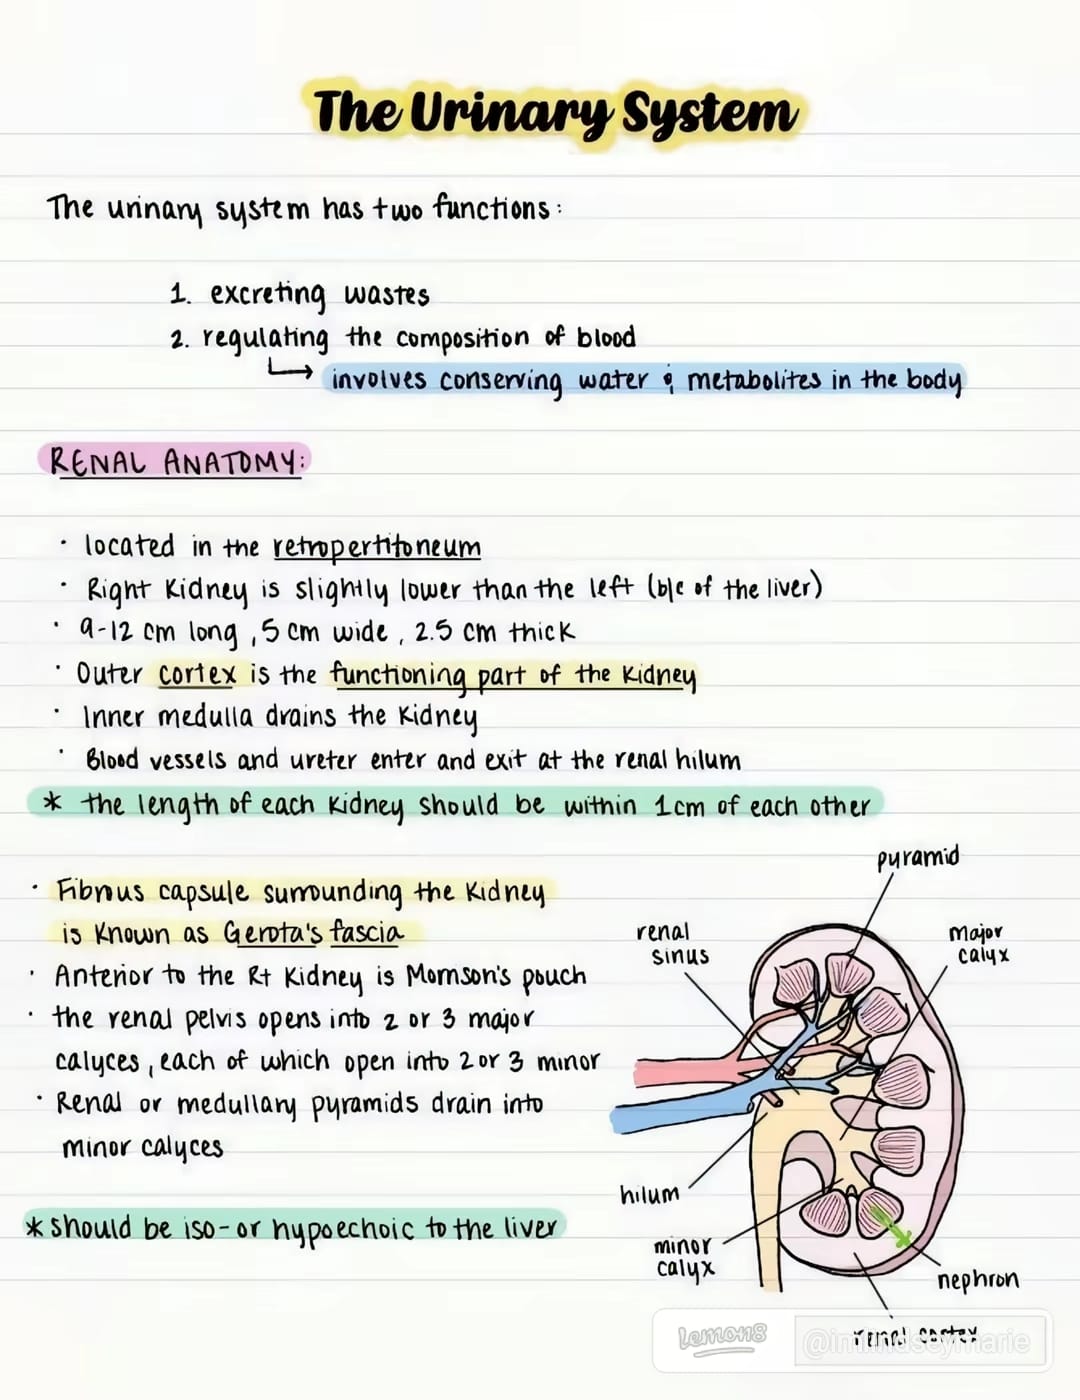 The Urinary System
The urinary system has two functions:
1. excreting wastes
2. regulating the composition of blood
↳ involves conserving water & metabolites in the body
RENAL ANATOMY:
· located in the retropertitoneum
· Right Kidney is slightly lower than the left (b/c of the liver)
· 9-12 cm long, 5 cm wide, 2.5 cm thick
· Outer cortex is the functioning part of the Kidney
· Inner medulla drains the Kidney
· Blood vessels and ureter enter and exit at the renal hilum
* the length of each Kidney should be within 1cm of each other
pyramid
· Fibrous capsule surrounding the Kidney
is Known as Gerota's fascia
renal
sinus
major
calyx
· Anterior to the Rt Kidney is Morrison's pouch
· the renal pelvis opens into 2 or 3 major
calyces, each of which open into 2 or 3 minor
· Renal or medullary pyramids drain into
minor calyces
hilum
* should be iso- or hypoechoic to the liver
minor
calyx
nephron
renal cortex
lemon8
@imlindseymarie